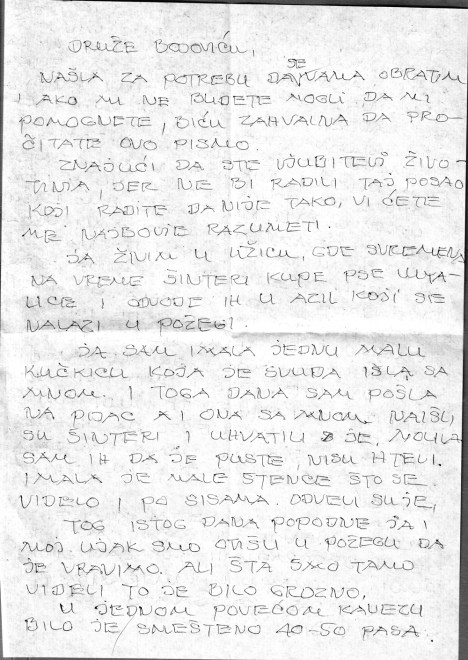 DRUŽE BOJOVIĆU,
NAŠLA ZA POTREBU DA SE VAMA OBRATIM
I AKO MI NE BUDETE MOGLI DA MI
POMOGNETE, BIĆU ZAHVALNA DA PRO-
ČITATE OVO PISMO.
ZNAJUĆI DA STE LJUBITELJ ŽIVO-
TINJA, JER NE BI RADILI TAJ POSAO
KOJI RADITE DA NIJE TAKO, VI ĆETE
ME NAJBOLJE RAZUMETI.
JA ŽIVIM U UŽICU, GDE S VREMENA
NA VREME ŠINTERI KUPE PSE LUTA-
LICE I ODVODE IH U AZIL KOJI SE
NALAZI U POŽEGI.
JA SAM IMALA JEDNU MALU
KUČKICU KOJA JE SVUDA IŠLA SA
MNOM. I TOGA DANA SAM POŠLA
NA PIJAC A I ONA SA MNOM. NAIŠLI
SU ŠINTERI I UHVATILI JE, MOLILA
SAM IH DA JE PUSTE, NISU HTELI.
IMALA JE MALE ŠTENCE ŠTO SE
VIDELO I PO SISAMA. ODVELI SU JE,
TOG ISTOG DANA POPODNE JA I
MOJ UJAK SMO OTIŠLI U POŽEGU DA
JE VRATIMO. ALI ŠTA SMO TAMO
VIDELI TO JE BILO GROZNO,
U JEDNOM POVEĆOM KAVEZU
BILO JE SMEŠTENO 40-50 PASA.